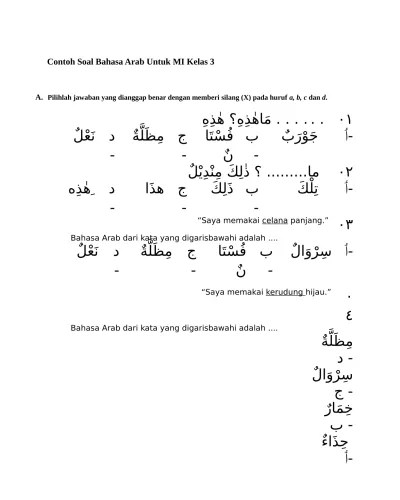 Contoh Soal Bahasa Arab Untuk MI Kelas 3
A. Pilihlah jawaban yang dianggap benar dengan memberi silang (X) pada huruf a, b, c dan d.
٠١ . . . . . . مَاهٰذِهِ؟ هٰذِهِ
أ- جَوْرَبٌ ب فُسْتَا ج مِظَلَّةٌ د نَعْلٌ
- نٌ - -
٠٢ ما......... ؟ ذٰلِكَ مِنْدِيْلٌ
أ- تِلْكَ ب ذَلِكَ ج هذَا د هٰذِه
- - -
٠٣ “Saya memakai celana panjang.”
Bahasa Arab dari kata yang digarisbawahi adalah ....
أ- سِرْوَالٌ ب فُسْتَا ج مِظَلَّةٌ د نَعْلٌ
- نٌ - -
. “Saya memakai kerudung hijau.”
٤
Bahasa Arab dari kata yang digarisbawahi adalah ....
مِظَلَّةٌ
د -
سِرْوَالٌ
ج -
خِمَارٌ
ب -
حِذَاءٌ
أ-